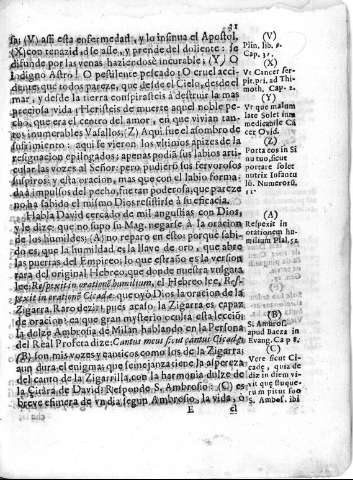 31
sa; (V) assi esta enfermedad, y lo insinua el Apostol,
(X) con tenazidad se asse, y prende del doliente: se
difunde por las venas haziendose incurable; (Y) O
indigno Astro! O pestilente pescado! O cruel acci-
dente; que todos parece, que desde el Cielo, desde el
mar, y desde la tierra conspirasteis à destruir la mas
preciosa vida; Heristeis de muerte aquel noble pe-
cho, que era el centro del amor, en que vivian tan-
tos innumerables Vasallos, (Z) Aqui fue el asombro de
sufrimiento: aqui se vieron los vltimos apizes de la
resignacion epilogados; apenas podia sus labios arti-
cular las vozes al Señor; pero pudieron sus fervorosos
suspiros; y esta oracion, mas que con el labio forma-
da à impulsos del pecho, fue tan poderosa, que parece
no ha sabido el mismo Dios resistirse à su eficacia.
Habla David cercado de mil angustias con Dios,
y le dize: que no supo su Mag. negarse à la oracion
de los humildes; (A) no reparo en esto; porque sabi-
do es, que la humildad es la llave de oro, que abre
las puertas del Empireo; lo que estraño es la version
rara del original Hebreo, que donde nuestra vulgata
lee: Respexit in orationē humilium, el Hebreo lee, Res-
pexit in orationē Cicadæ: que oyò Dios la oracion de la
Zigarra. Raro dezir! pues acaso, la Zigarra es capaz
de oracion: ea que gran mysterio oculta esta leccion!
la dulze Ambrosia de Milan hablando en la Persona
del Real Profeta dize: Cantus meus sicut cantus Cicadæ:
(B) son mis vozes y canticos como los de la Zigarra;
aun dura el enigma: que semejança tiene la aspereza
del canto de la Zigarrilla con la harmonia dulze de
la Citara de David? Responde S. Ambrosio: (C) es
breve esfinera de vn dia, segun Ambrosio, la vida, ò
E el
(V)
Plin. lib. 9.
Cap. 31.
(X)
Vt Cancer ser-
pit. pri. ad Thi-
moth. Cap. 2.
(Y)
Vt que malum
late solet im-
medicabile Cā
cer Ovid.
(Z)
Porta eos in Si
nu tuo, sicut
portare solet
nutrix Infantu
lū. Numeror.
11.
(A)
Respexit in
orationem hu-
milium Psal. 51
(B)
S. Ambros.
apud Baeza in
Evang. Cap 8.
(C)
Vere sicut Ci-
cadę, quia de
die in diem vi-
vit
S. Ambos. ibi